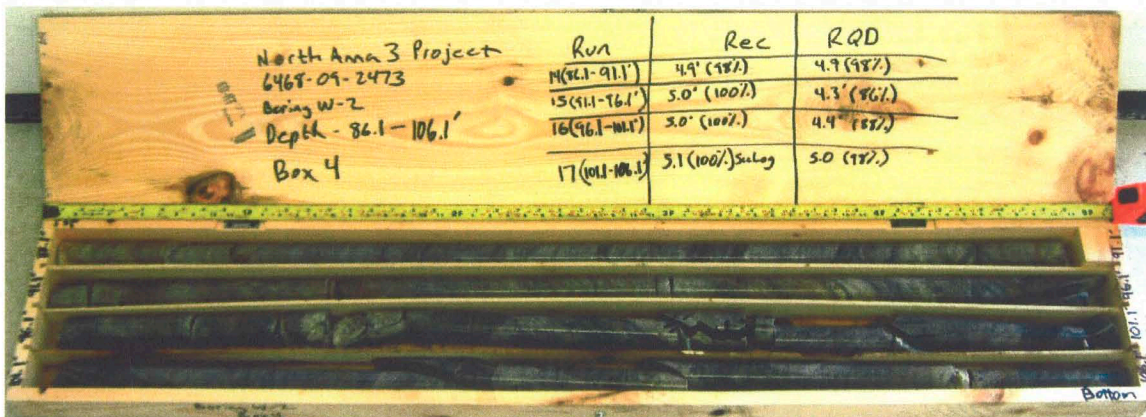 North Anna 3 Project
6468-09-2473
Boring W-2
Depth - 86.1 - 106.1'
Box 4
Run Rec RQD
14(86.1-91.1') 4.9' (98%) 4.9 (98%)
15(91.1-96.1') 5.0' (100%) 4.3' (86%)
16(96.1-101.1') 5.0' (100%) 4.4' (88%)
17(101.1-106.1') 5.1 (100%) See Log 5.0 (98%)
91.1'
96.1'
101.1
Bottom